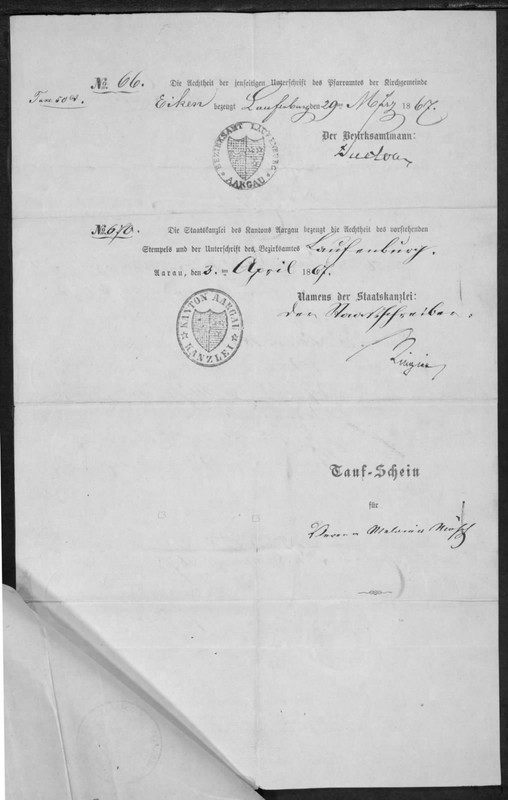 № 66. Die Aechtheit der jenseitigen Unterschrift des Pfarramtes der Kirchgemeinde
Eiken bezeugt Laufenburg den 29ten März 1867.
Der Bezirksamtmann:
BEZIRKSAMT LAUFENBURG
AARGAU
№ 670. Die Staatskanzlei des Kantons Aargau bezeugt die Aechtheit des vorstehenden
Stempels und der Unterschrift des Bezirksamtes Laufenburg.
Aarau, den 3. ten April 1867.
Namens der Staatskanzlei:
Der Staatsschreiber,
KANTON AARGAU
KANZLEI
Ringier
Tauf-Schein
für